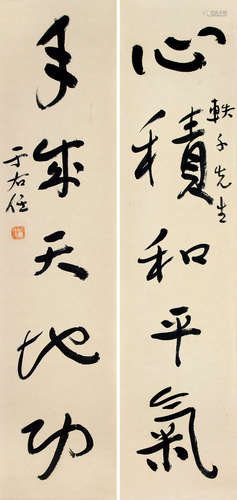 軼子先生
心積和平氣
手成天地功
于右任